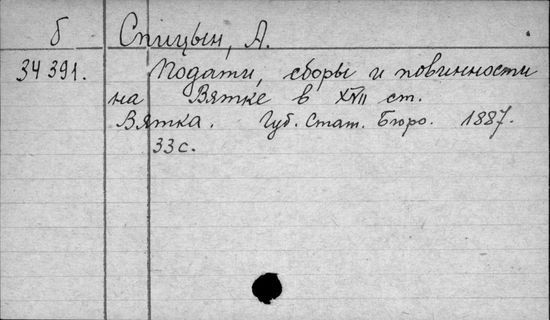 б Спицын, А.
34391. Подати, сборы и повинности
на Вятке в XVII ст.
Вятка. Губ. Стат. Бюро. 1887.
33 с.